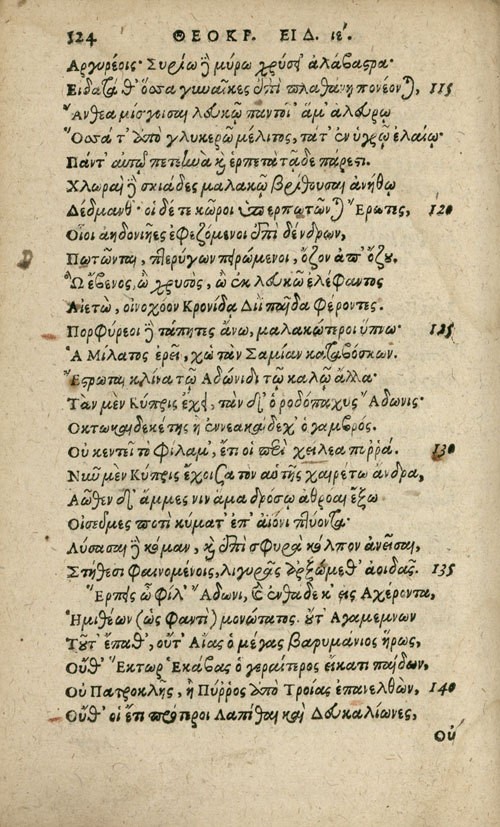 124 ΘΕΟΚΡ. ΕΙΔ. ιέ.
Ἀργυρέοις· Συρίω ἢ μύρω χρύσι' ἀλάβαστρα·
Εἴδατά θ' ὅσσα γυναῖκες ἐπὶ πλαθάνῃ πονέονται, 115
Ἄνθεα μίσγοισαι λευκῷ παντοῖ' ἅμ' ἀλεύρῳ
Ὅσσα τ' ἀπὸ γλυκερῶ μέλιτος, τά τ' ἐν ὑγρῷ ἐλαίῳ·
Πάντ' αὐτῷ πετεινὰ καὶ ἑρπετὰ τᾷδε πάρεστι.
Χλωραὶ δὲ σκιάδες μαλακῷ βρίθουσαι ἀνήθῳ
Δέδμανθ'· οἱ δέ τε κῶροι ὑπερπωτῶνται Ἔρωτες, 120
Οἷοι ἀηδονιῆες ἐφεζόμενοι ἐπὶ δένδρων,
Πωτῶνται, πτερύγων πειρώμενοι, ὄζον ἀπ' ὄζου.
Ὢ ἔβενος, ὢ χρυσὸς, ὢ ἐκ λευκῶ ἐλέφαντος
Αἰετὼ, οἰνοχόον Κρονίδᾳ Διὶ παῖδα φέροντες.
Πορφύρεοι δὲ τάπητες ἄνω, μαλακώτεροι ὕπνω· 125
Ἁ Μίλατος ἐρεῖ, χὠ τὰν Σαμίαν καταβόσκων.
Ἔστρωται κλίνα τῷ Ἀδώνιδι τῷ καλῷ ἄλλα·
Τὰν μὲν Κύπρις ἔχει, τὰν δ' ὁ ῥοδόπαχυς Ἄδωνις·
Ὀκτωκαιδεκέτης ἢ ἐννεακαίδεχ' ὁ γαμβρός.
Οὐ κεντεῖ τὸ φίλαμ', ἔτι οἱ περὶ χείλεα πυῤῥά. 130
Νῦν μὲν Κύπρις ἔχοισα τὸν αὑτῆς χαιρέτω ἄνδρα,
Ἀῶθεν δ' ἄμμες νιν ἅμα δρόσῳ ἀθρόαι ἔξω
Οἰσεῦμες ποτὶ κύματ' ἐπ' ἀϊόνι πτύοντα·
Λύσασαι δὲ κόμαν, καὶ ἐπὶ σφυρὰ κόλπον ἀνεῖσαι,
Στήθεσι φαινομένοις, λιγυρᾶς ἀρξώμεθ' ἀοιδᾶς. 135
Ἕρπεις ὦ φίλ' Ἄδωνι, καὶ ἐνθάδε κ' εἰς Ἀχέροντα,
Ἡμιθέων (ὡς φαντὶ) μονώτατος. οὔτ' Ἀγαμέμνων
Τοῦτ' ἔπαθ', οὔτ' Αἴας ὁ μέγας βαρυμάνιος ἥρως,
Οὔθ' Ἕκτωρ Ἑκάβας ὁ γεραίτερος εἴκατι παίδων,
Οὐ Πατροκλῆς, ἢ Πύῤῥος ἀπὸ Τροίας ἐπανελθὼν, 140
Οὔθ' οἱ ἔτι πρότεροι Λαπίθαι καὶ Δευκαλίωνες,
Οὐ